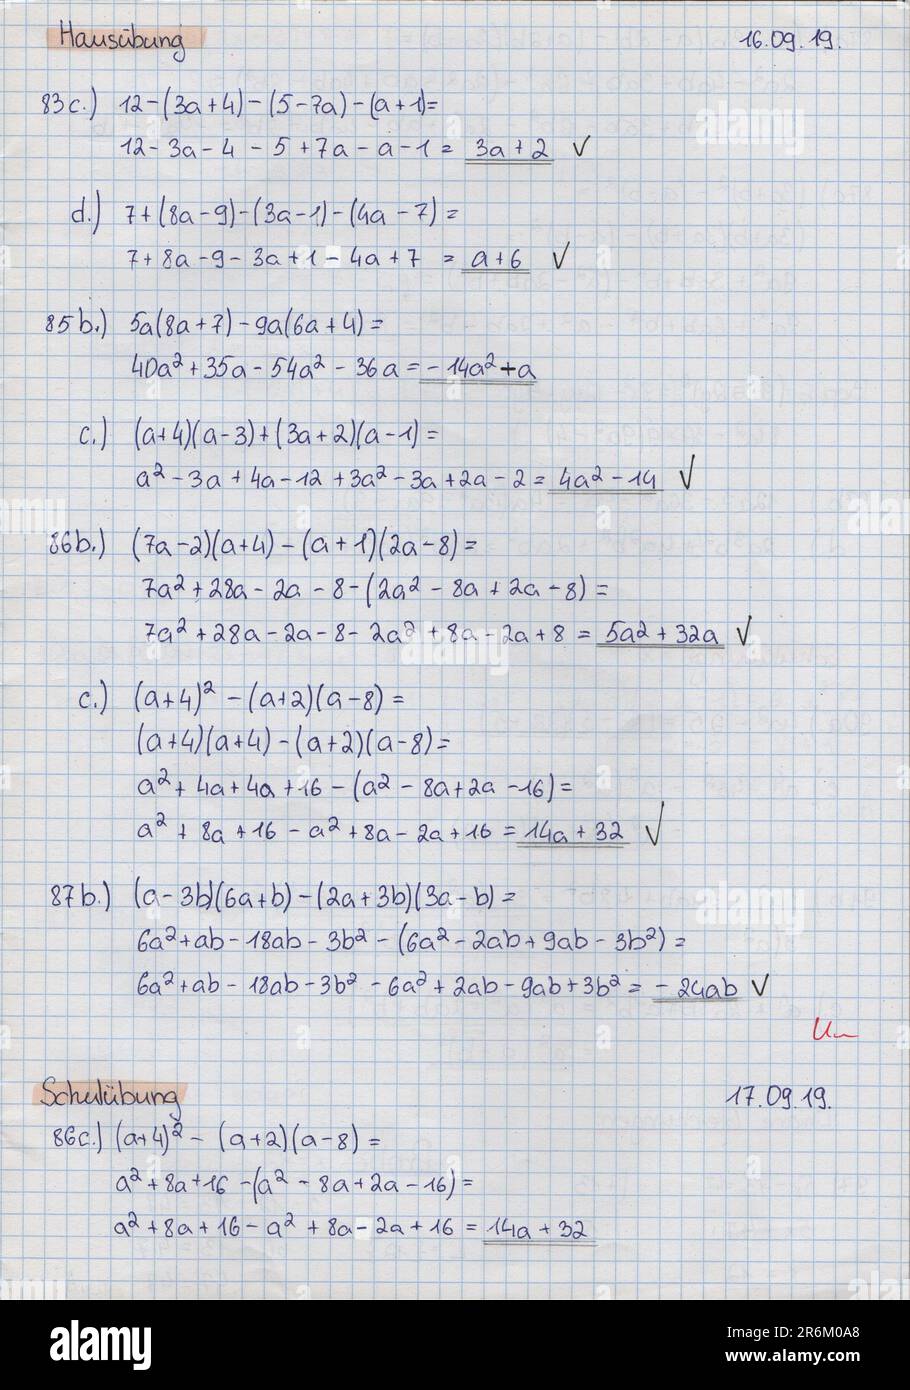 Hausübung 16.09.19.
83c.) 12-(3a+4)-(5-7a)-(a+1)=
12-3a-4-5+7a-a-1= 3a+2 ✓
d.) 7+(8a-9)-(3a-1)-(4a-7)=
7+8a-9-3a+1-4a+7 = a+6 ✓
85b.) 5a(8a+7)-9a(6a+4)=
40a²+35a-54a²-36a=-14a²+a
c.) (a+4)(a-3)+(3a+2)(a-1)=
a²-3a+4a-12+3a²-3a+2a-2=4a²-14 ✓
86b.) (7a-2)(a+4)-(a+1)(2a-8)=
7a²+28a-2a-8-(2a²-8a+2a-8)=
7a²+28a-2a-8-2a²+8a-2a+8=5a²+32a ✓
c.) (a+4)²-(a+2)(a-8)=
(a+4)(a+4)-(a+2)(a-8)=
a²+4a+4a+16-(a²-8a+2a-16)=
a²+8a+16-a²+8a-2a+16=14a+32 ✓
87b.) (a-3b)(6a+b)-(2a+3b)(3a-b)=
6a²+ab-18ab-3b²-(6a²-2ab+9ab-3b²)=
6a²+ab-18ab-3b²-6a²+2ab-9ab+3b²=-24ab ✓
Schulübung 17.09.19.
86c.) (a+4)²-(a+2)(a-8)=
a²+8a+16-(a²-8a+2a-16)=
a²+8a+16-a²+8a-2a+16=14a+32
alamy
Image ID: 2R6M0A8
www.alamy.com